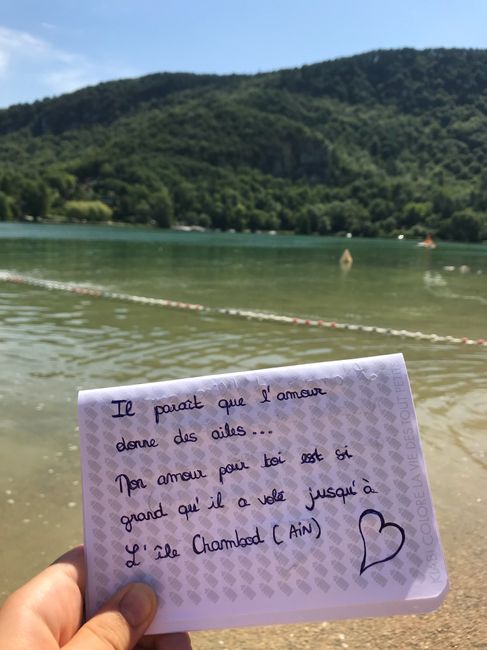 Il parait que l'amour
donne des ailes...
Mon amour pour toi est si
grand qu'il a volé jusqu'à
L'île Chambod (AiN)
COLORE LA VIE DES